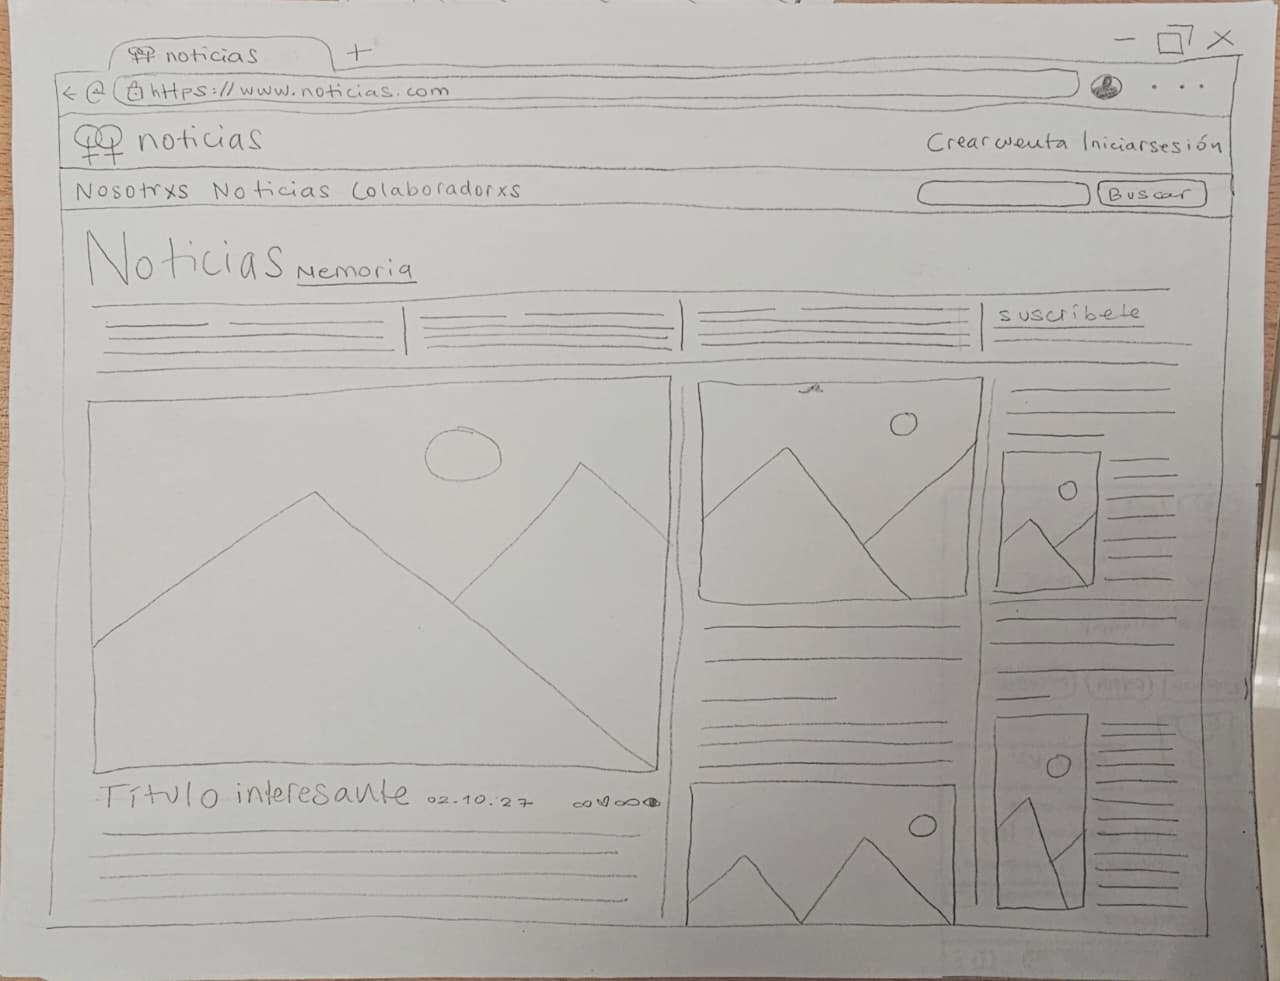 noticias +
https://www.noticias.com
noticias
Crear cuenta Iniciar sesión
Nosotrxs Noticias Colaboradorxs
Buscar
Noticias Memoria
suscríbete
Título interesante 02.10.27